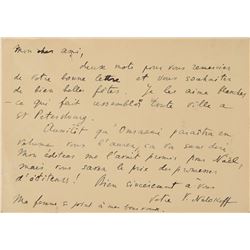 Mon cher ami,
deux mots pour vous remercier
de votre bonne lettre et vous souhaiter
de bien belles fêtes. Je les aime blanches,
- ce qui fait ressembler toute ville à
St Petersbourg.
Aussitôt qu'Onéguine paraîtra en
volume vous l'aurez, ça va sans dire.
Mon éditeur me l'avait promis pour Noël,
mais vous savez le prix des promesses
d'éditeurs! Bien sincèrement à vous
Votre V. Nabokoff
Ma femme se joint à mes bons vœux.